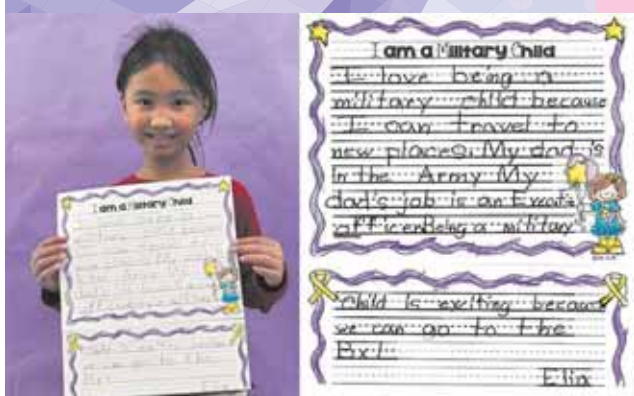 I am a Military Child
I love being a
military child because
I can travel to
new places. My dad is
In the Army My
dad's job is an Executive
officer. Being a military
Child is exciting because
we can go to the
Bx!
I am a Military Child